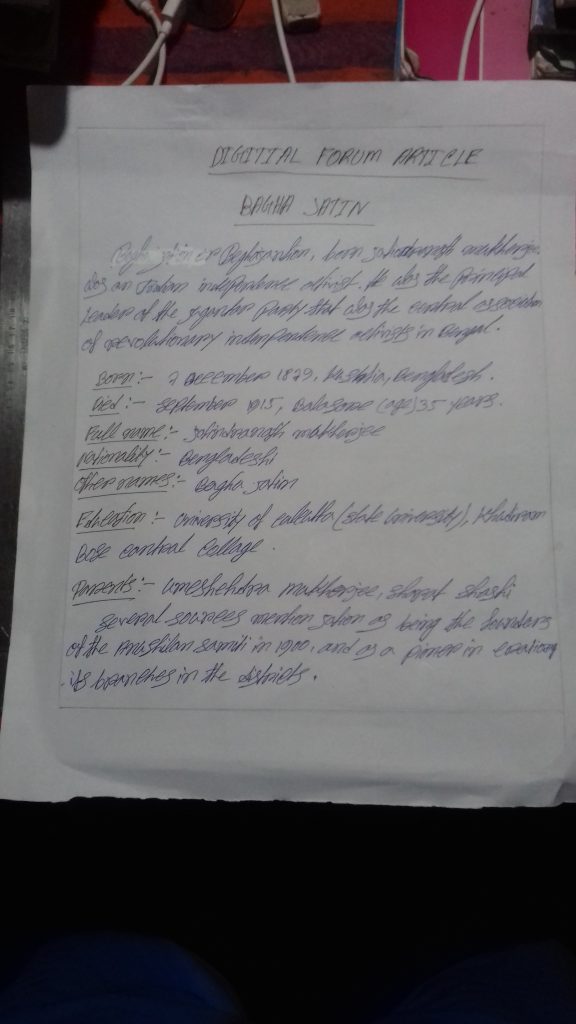 DIGITIAL FORUM ARTICLE
BAGHA JATIN
Bagha jatin or Baghajatin, born Jatindranath mukherjee.
Was an Indian independence activist. He was the principal
Leader of the Jugantar Party that was the central association
of revolutionary independence activists in Bengal.
Born:- 7 December 1879, Kushtia, Bangladesh.
Died:- September 1915, Balasore (age) 35 years.
Full name:- Jatindranath mukherjee
Nationality:- Bengladeshi
Other names:- Bagha Jatin
Education:- University of calcutta (state university), Khudiram
Bose central Collage.
Parents:- Umeshchdra mukherjee, sharat shashi
Several sources mention Jatin as being the founders
of the Anushilan samiti in 1900, and as a pioner in creating
its branches in the districts.